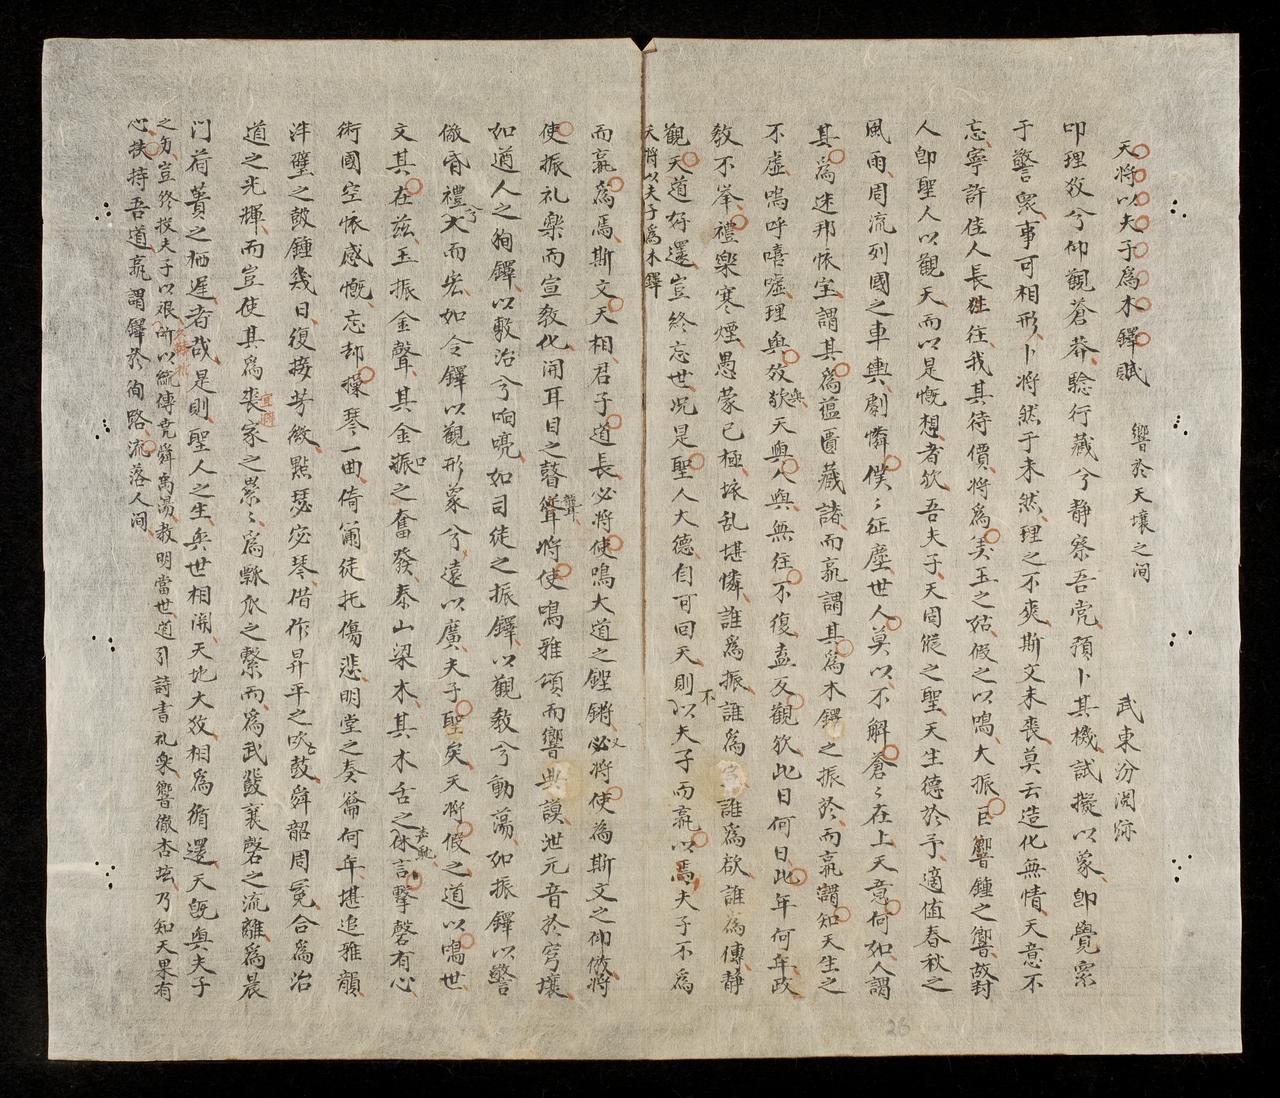 天將以夫子爲木鐸賦 響於天壤之间 武東汾閑跡
叩理教兮仰觀蒼莽騐行藏兮静察吾党預卜其機試擬以象卽覺累
于警衆事可相形卜將然于未然理之不爽斯文未喪莫云造化無情天意不
忘寧許佳人長往徃我其待價將爲美玉之沽假之以鳴大振巨響鍾之響故封
人卽聖人以觀天而以是慨想者欤吾夫子天固縱之聖天生德於予適值春秋之
風雨周流列國之車輿劇憐僕〻征塵世人莫以不解倉〻在上天意何如人謂
其爲迷邦怀宝謂其爲藴匱藏諸而孰謂其爲木鐸之振於而孰謂知天生之
不虛嗚呼嘻噓理與教欤與天與人與無往不復盍反觀欤此日何日此年何年政
教不举禮樂寒煙愚蒙已極坏乱堪憐誰爲振誰爲宣誰爲欲誰爲傳静
觀天道好還豈終忘世况是聖人大德自可回天則不以夫子而孰以焉夫子不爲
天將以夫子爲木鐸
而孰爲焉斯文天相君子道長必將使鳴大道之鏗鏘必又將使為斯文之仰倣將
使振礼樂而宣教化開耳目之瞽聾將使鳴雅頌而響典謨泄元音於穹壤
如遒人之狥鐸以敷治兮响喨如司徒之振鐸以觀教兮動蕩如振鐸以警
俶昏禮大兮而宏如令鐸以觀形象兮遠以廣夫子聖矣天將假之道以鳴世
文其在玆玉振金聲其金振之奮發泰山梁木其木舌之休言擊磬有心
術國空怀感慨忘却操琴一曲倚蘭徒托傷悲明堂之奏籥何年堪追雅韻
泮璧之鼓鍾幾日復撥芳徽點瑟宓琴借作昇平之吹鼓舜韶周冕合爲治
道之光輝而豈使其爲喪家之累〻爲匏瓜之繫而爲武鼗襄磬之流離爲晨
门荷蕢之栖遅者哉是則聖人之生與世相闗天地大教相爲循還天旣與夫子
之方豈終投夫子以艰所以統傳尭舜禹湯教明當世道引詩書礼樂響徹杏坛乃知天果有
心扶持吾道孰謂鐸於徇路流落人间